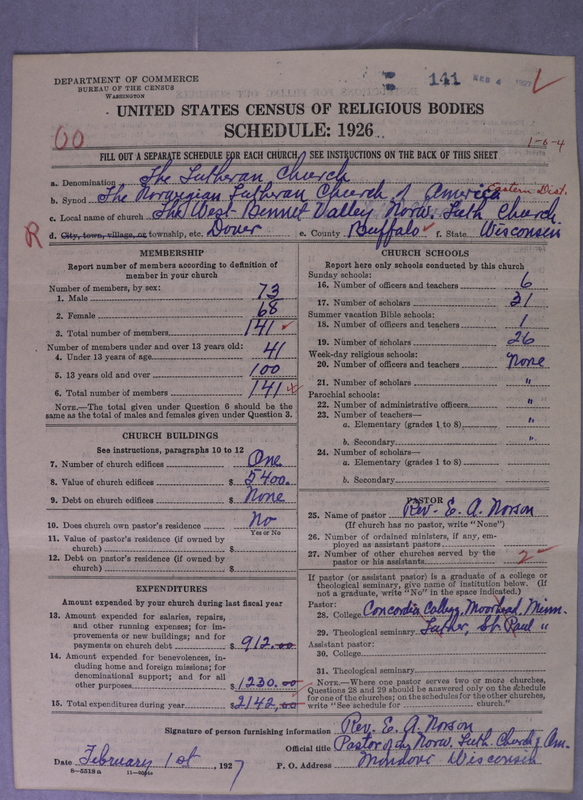 DEPARTMENT OF COMMERCE
BUREAU OF THE CENSUS
WASHINGTON
141 FEB 4 1927
UNITED STATES CENSUS OF RELIGIOUS BODIES
SCHEDULE: 1926
00
1-6-4
FILL OUT A SEPARATE SCHEDULE FOR EACH CHURCH. SEE INSTRUCTIONS ON THE BACK OF THIS SHEET
a. Denomination The Lutheran Church
b. Synod The Norwegian Lutheran Church of America Eastern Dist.
c. Local name of church The West Bennet Valley Norw. Luth. Church.
R d. City, town, village, or township, etc. Dover e. County Buffalo f. State Wisconsin
MEMBERSHIP
Report number of members according to definition of member in your church
Number of members, by sex:
1. Male 73
2. Female 68
3. Total number of members 141
Number of members under and over 13 years old:
4. Under 13 years of age 41
5. 13 years old and over 100
6. Total number of members 141
NOTE.—The total given under Question 6 should be the
same as the total of males and females given under Question 3.
CHURCH BUILDINGS
See instructions, paragraphs 10 to 12
7. Number of church edifices One
8. Value of church edifices $ 5400.
9. Debt on church edifices $ None
10. Does church own pastor's residence No
Yes or No
11. Value of pastor's residence (if owned by
church) $
12. Debt on pastor's residence (if owned by
church) $
EXPENDITURES
Amount expended by your church during last fiscal year
13. Amount expended for salaries, repairs,
and other running expenses; for im-
provements or new buildings; and for
payments on church debt $ 912.00
14. Amount expended for benevolences, in-
cluding home and foreign missions; for
denominational support; and for all
other purposes $ 1230.00
15. Total expenditures during year $ 2142.00
CHURCH SCHOOLS
Report here only schools conducted by this church
Sunday schools:
16. Number of officers and teachers 6
17. Number of scholars 31
Summer vacation Bible schools:
18. Number of officers and teachers 1
19. Number of scholars 26
Week-day religious schools:
20. Number of officers and teachers None
21. Number of scholars "
Parochial schools:
22. Number of administrative officers "
23. Number of teachers—
a. Elementary (grades 1 to 8) "
b. Secondary "
24. Number of scholars—
a. Elementary (grades 1 to 8)
b. Secondary
PASTOR
25. Name of pastor Rev. E. A. Norson
(If church has no pastor, write "None")
26. Number of ordained ministers, if any, em-
ployed as assistant pastors
27. Number of other churches served by the
pastor or his assistants 2
If pastor (or assistant pastor) is a graduate of a college or
theological seminary, give name of institution below. (If
not a graduate, write "No" in the space indicated.)
Pastor:
28. College Concordia College, Moorhead, Minn.
29. Theological seminary Luther, St. Paul "
Assistant pastor:
30. College
31. Theological seminary
NOTE.—Where one pastor serves two or more churches,
Questions 28 and 29 should be answered only on the schedule
for one of the churches; on the schedules for the other churches,
write "See schedule for church."
Signature of person furnishing information Rev. E. A. Norson
Official title Pastor of the Norw. Luth. Church of Am.
Date February 1st, 1927 P. O. Address Mondovi Wisconsin
8—5518a